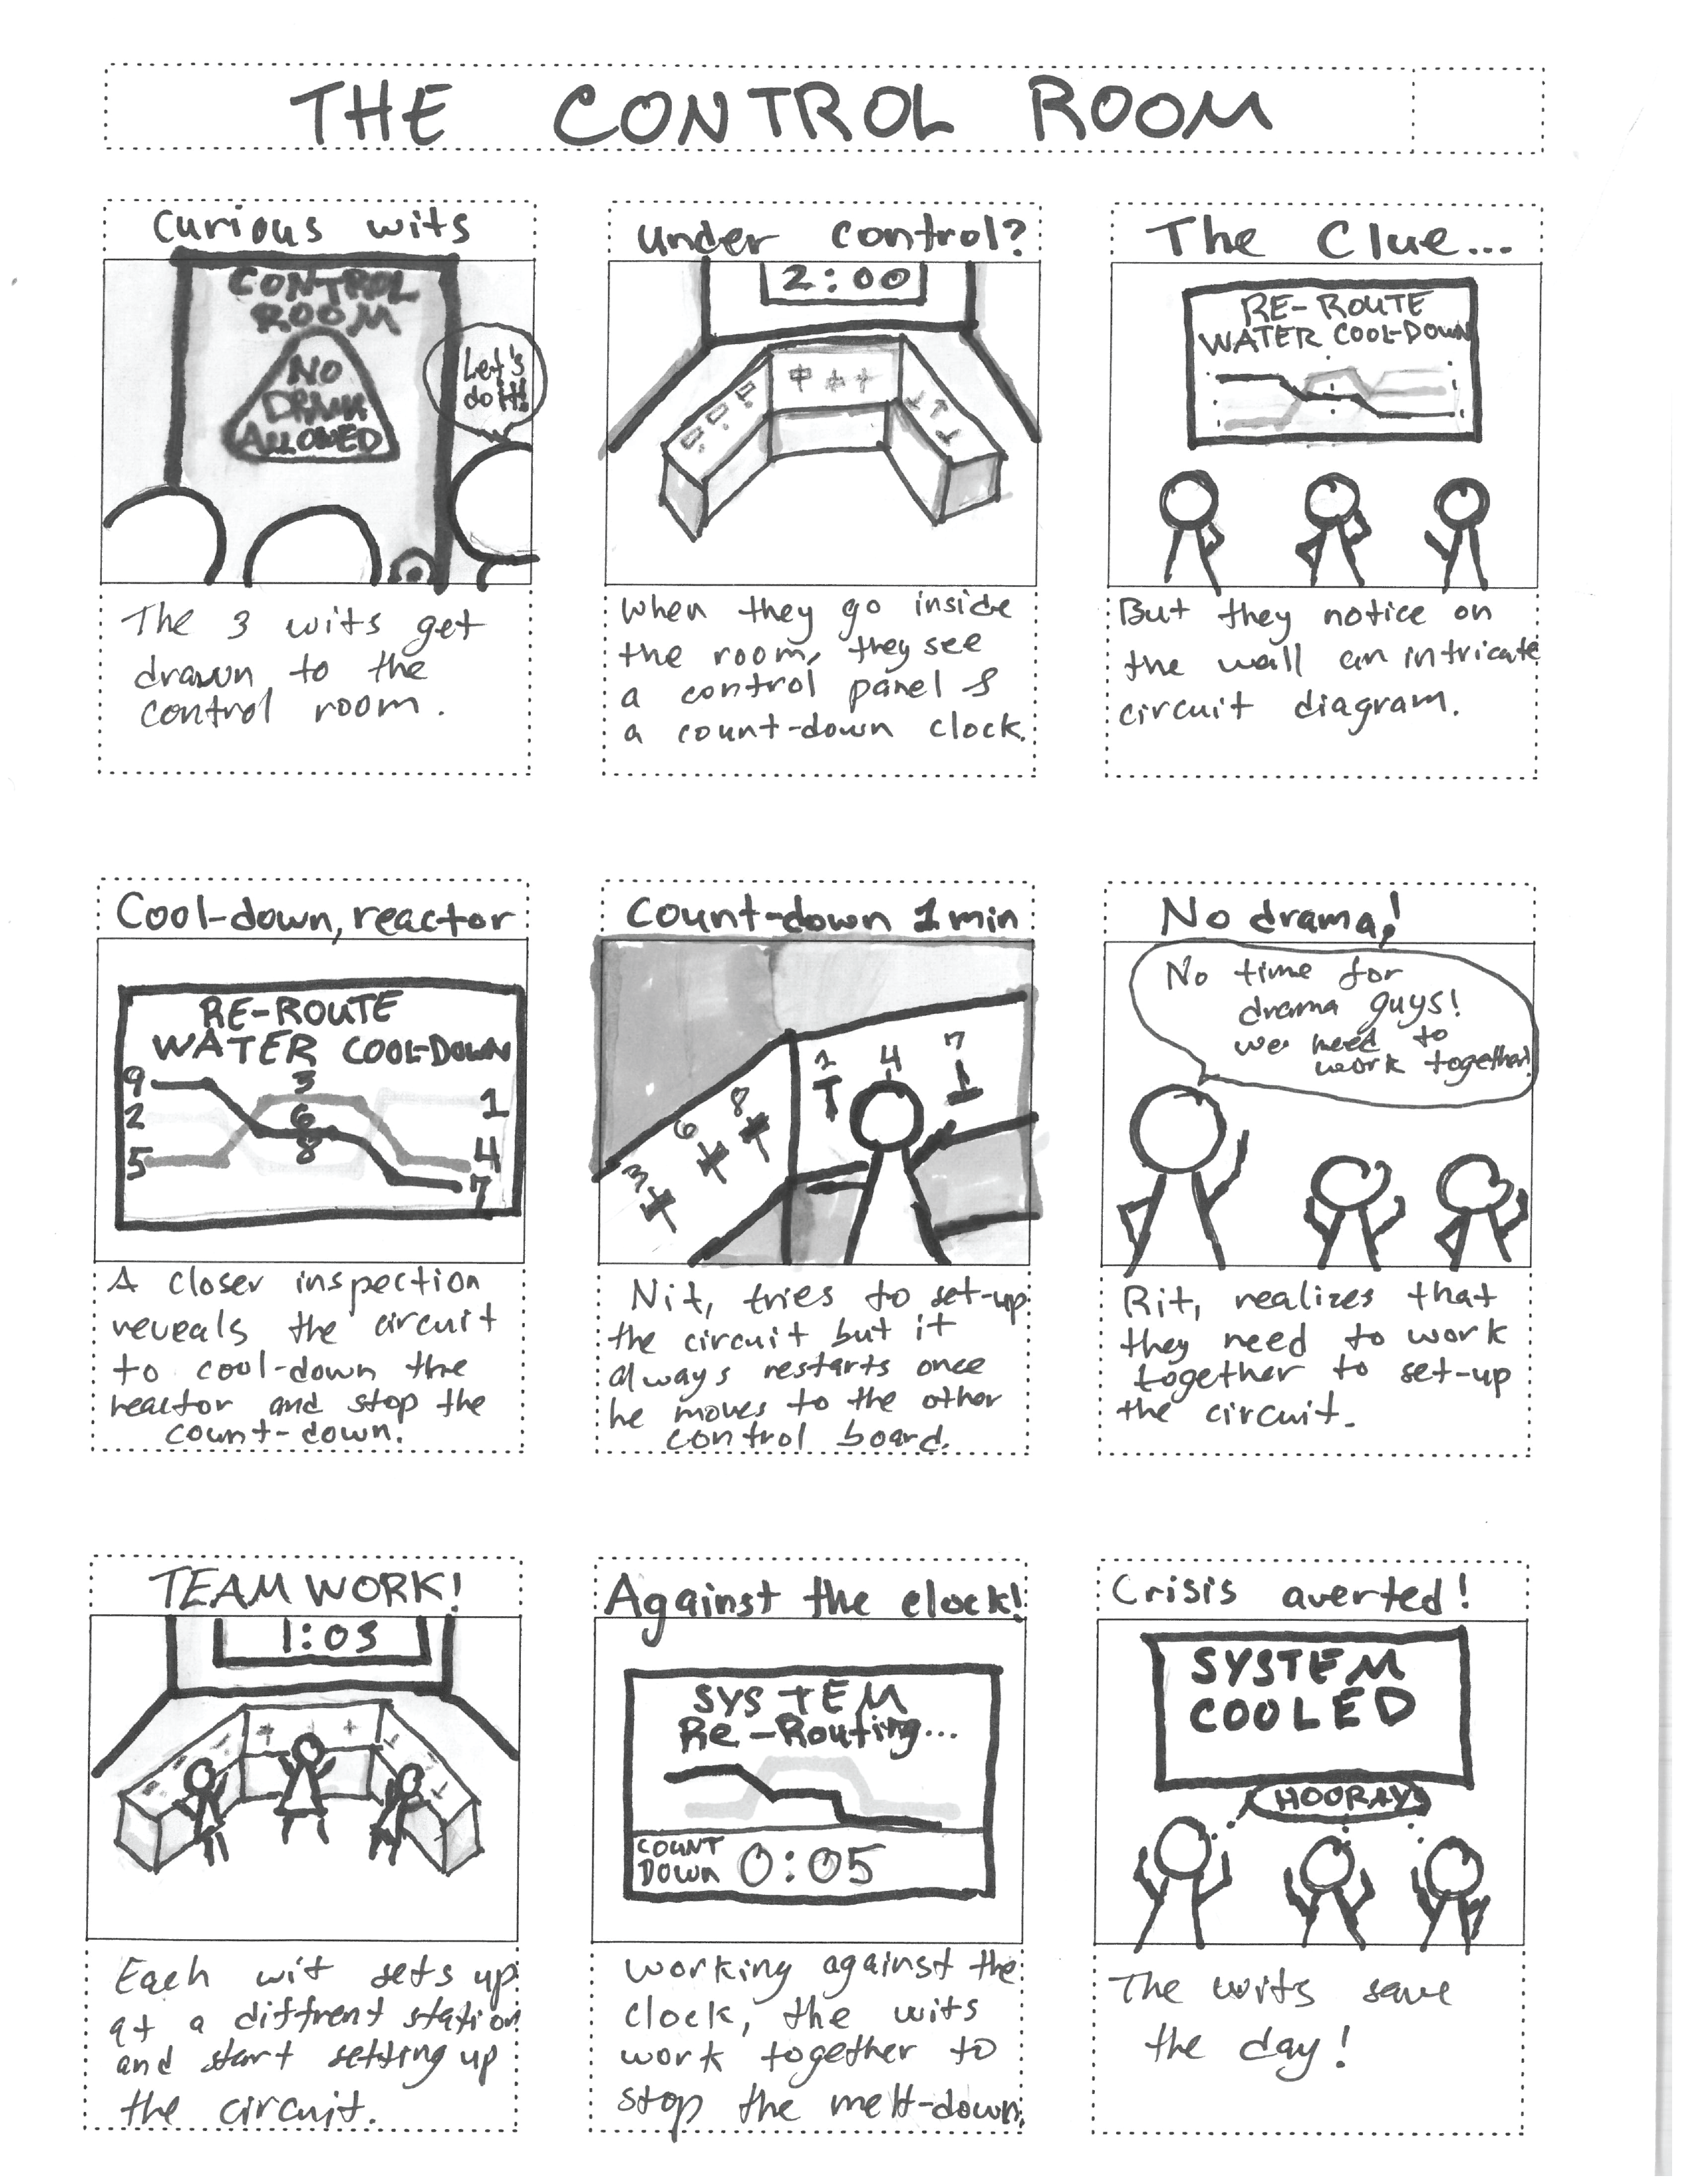 THE CONTROL ROOM
Curious wits
CONTROL
ROOM
NO
DRAMA
ALLOWED
Let's
do it!
The 3 wits get
drawn to the
control room.
under control?
2:00
When they go inside
the room, they see
a control panel &
a count-down clock.
The Clue...
RE-ROUTE
WATER COOL-DOWN
But they notice on
the wall an intricate
circuit diagram.
Cool-down, reactor
RE-ROUTE
WATER COOL-DOWN
9 3
2 6 1
5 8 4
7
A closer inspection
reveals the circuit
to cool-down the
reactor and stop the
count-down.
Count-down 1 min
1 4 7
3 6 8
Nit, tries to set-up
the circuit but it
always restarts once
he moves to the other
control board.
No drama!
No time for
drama guys!
we need to
work together!
Rit, realizes that
they need to work
together to set-up
the circuit.
TEAM WORK!
1:03
Each wit sets up
at a diffrent station
and start setting up
the circuit.
Against the clock!
SYSTEM
Re-Routing...
COUNT
DOWN 0:05
working against the
clock, the wits
work together to
stop the melt-down.
Crisis averted!
SYSTEM
COOLED
HOORAY
The wits save
the day!